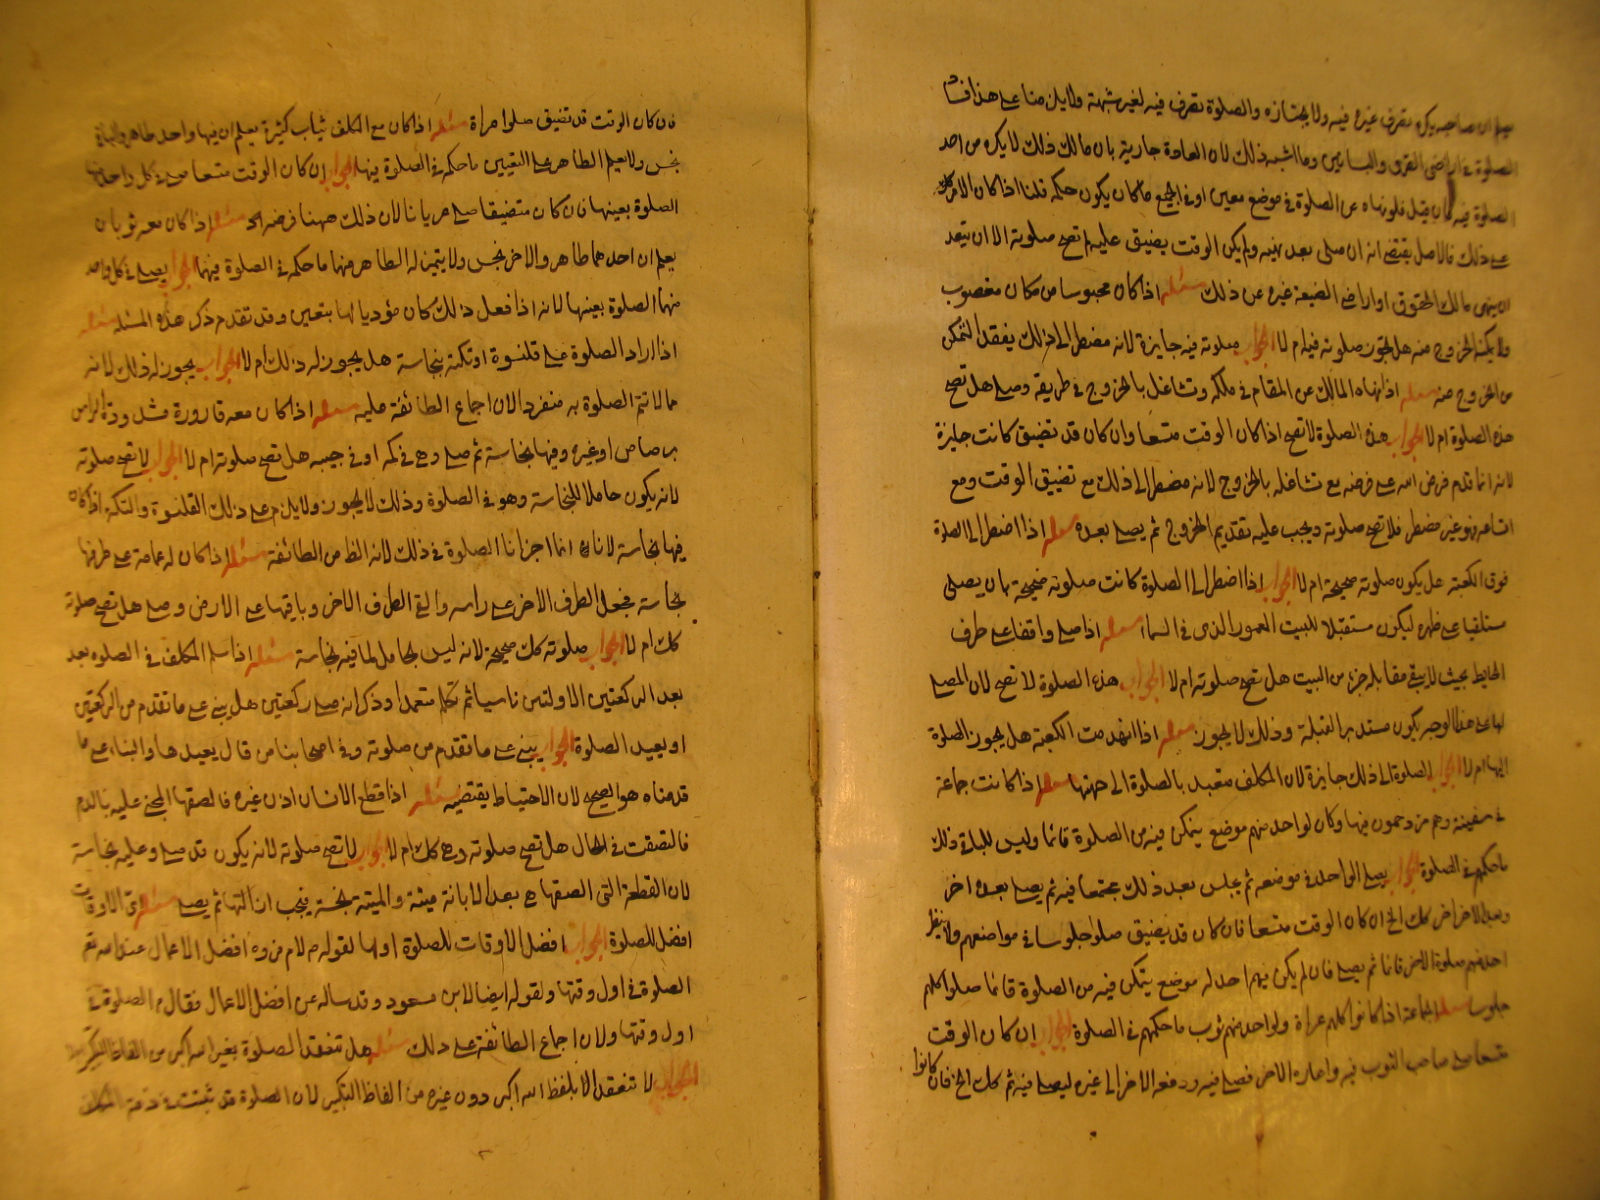 يعلم ان صاحبه يكره تصرف غيره فيه ولا يختاره والصلوة تصرف فيه لغير شبهة ولا يلزمنا على هذا
الصلوة في اراضي القرى والبساتين وما اشبه ذلك لان العادة جارية بان مالك ذلك لا يكره من احد
الصلوة فيه فان قيل فلو نهاه عن الصلوة في موضع معين او في الجميع ما كان يكون حكمه قلنا اذا كان الامر
على ذلك فالاصل يقتضى انه ان صلى بعد نهيه ولم يكن الوقت يضيق عليه لم تصح صلوته الا ان
ان ينهى مالك الحقوق او اراضى الضيعة غيره عن ذلك مسئلة اذا كان محبوسا من مكان مغصوب
ولا يمكنه الخروج منه هل تجوز صلوته فيه ام لا الجواب صلوته فيه جايزة لانه مضطر الى ذلك بفقد التمكن
من الخروج منه مسئلة اذا نهاه المالك عن المقام في ملكه وتشاغل بالخروج في طريقه وصلى هل تصح
هذه الصلوة ام لا الجواب هذه الصلوة لا تصح اذا كان الوقت متسعا وان كان قد تضيق كانت جايزة
لانه انما قدم فرض الله على فرضه مع تشاغله بالخروج لانه مضطر الى ذلك مع تضييق الوقت ومع
اتساعه فهو غير مضطر فلا تصح صلوته ويجب عليه تقديم الخروج ثم يصلى بعده مسئلة اذا اضطر الى الصلوة
فوق الكعبة هل يكون صلوته صحيحة ام لا الجواب اذا اضطر الى الصلوة كانت صلوته صحيحة بان يصلى
مستلقيا على ظهره ليكون مستقبلا للبيت المعمور الذى في السماء مسئلة اذا صلى واقفا على طرف
الحايط بحيث لا يبقى مقابله جزء من البيت هل تصح صلوته ام لا الجواب هذه الصلوة لا تصح لان المصلى
لها على هذا الوجه يكون مستدبر القبلة وذلك لا يجوز مسئلة اذا انهدمت الكعبة هل يجوز الصلوة
اليها ام لا الجواب الصلوة الى ذلك جايزة لان المكلف متعبد بالصلوة الى جهتها مسئلة اذا كانت جماعة
في سفينة وهم مزدحمون فيها وكان لواحد منهم موضع يتمكن فيه من الصلوة قائما وليس للباقى ذلك
ما حكمهم في الصلوة الجواب يصلى الواحد في موضعه ثم يجلس بعد ذلك مجتمعا فيه ثم يصلى بعده اخر
وبعد الاخر اخر كك الخ ان كان الوقت متسعا فان كان قد تضيق صلوا جلوسا في مواضعهم ولا ينتظر
احد منهم صلوة الاخر قائما ثم يصلى فان لم يكن فيهم احد له موضع يتمكن فيه من الصلوة قائما صلوا كلهم
جلوسا مسئلة الجماعة اذا كانوا كلهم عراة ولواحد منهم ثوب ما حكمهم في الصلوة الجواب ان كان الوقت
متسعا صلى صاحب الثوب فيه واعاره الاخر فصلى فيه ودفعه الاخر الى غيره ليصلى فيه ثم كك الخ فان
كانوا
فان كان الوقت قد تضيق صلوا عراة مسئلة اذا كان مع المكلف ثياب كثيرة يعلم ان فيها واحد طاهر والباقى
نجس ولا يعلم الطاهر على التعيين ما حكمه في الصلوة فيها الجواب ان كان الوقت متسعا صلى في كل واحد منها
الصلوة بعينها فان كان متضيقا صلى عريانا لان ذلك ههنا فرضه مسئلة اذا كان معه ثوبان
يعلم ان احدهما طاهر والاخر نجس ولا يتميز له الطاهر منها ما حكمه في الصلوة فيهما الجواب يصلى في كل واحد
منهما الصلوة بعينها لانه اذا فعل ذلك كان مؤديا لها بتعين وقد تقدم ذكر هذه المسئلة مسئلة
اذا اراد الصلوة على قلنسوة او تكة بنجاسة هل يجوز له ذلك ام لا الجواب يجوز له ذلك لانه
مما لا تتم الصلوة به منفردا لان اجماع الطائفة عليه مسئلة اذا كان معه قارورة مشدودة الراس
برصاص او غيره وفيها نجاسة ثم صلى وهى في كمه او في جيبه هل تصح صلوته ام لا الجواب لا تصح صلوته
لانه يكون حاملا للنجاسة وهو في الصلوة وذلك لا يجوز ولا يلزم على ذلك القلنسوة والتكة اذا كان
فيها نجاسة لانا انما اجزنا الصلوة في ذلك لانه الظ من الطائفة مسئلة اذا كان له عمامة على طرفها
نجاسة فجعل الطرف الاخر على راسه والقى الطرف الاخر وباقيها على الارض وصلى هل تصح صلوته
كك ام لا الجواب صلوته كك صحيحة لانه ليس بحامل لما فيه نجاسة مسئلة اذا سلم المكلف في الصلوه بعد
بعد الركعتين الاولتين ناسيا ثم تكلم متعمدا وذكر انه صلى ركعتين هل يبنى على ما تقدم من الركعتين
او يعيد الصلوة الجواب يبنى على ما تقدم من صلوته وفي اصحابنا من قال يعيدها والبناء على ما
قدمناه هو الصحيح لان الاحتياط يقتضيه مسئلة اذا قطع الانسان اذن غيره فالصقها المجنى عليه بالدم
فالتصقت في الحال هل تصح صلوته وهى كك ام لا الجواب لا تصح صلوته لانه يكون قد صلى وعليه نجاسة
لان القطعة التى الصقها هى بعد الابانة ميتة والميتة نجسة فيجب ازالتها ثم يصلى مسئلة اى الاوقات
افضل للصلوة الجواب افضل الاوقات للصلوة اولها لقوله م لام فروه افضل الاعمال عند الله تع
الصلوة في اول وقتها ولقوله ايضا لابن مسعود وقد ساله عن افضل الاعمال فقال م الصلوة في
اول وقتها ولان اجماع الطائفة على ذلك مسئلة هل تنعقد الصلوة بغير الله اكبر من الفاظ التكبير
الجواب لا تنعقد الا بلفظ الله اكبر دون غيره من الفاظ التكبير لان الصلوة متى ثبتت في ذمة المكلف